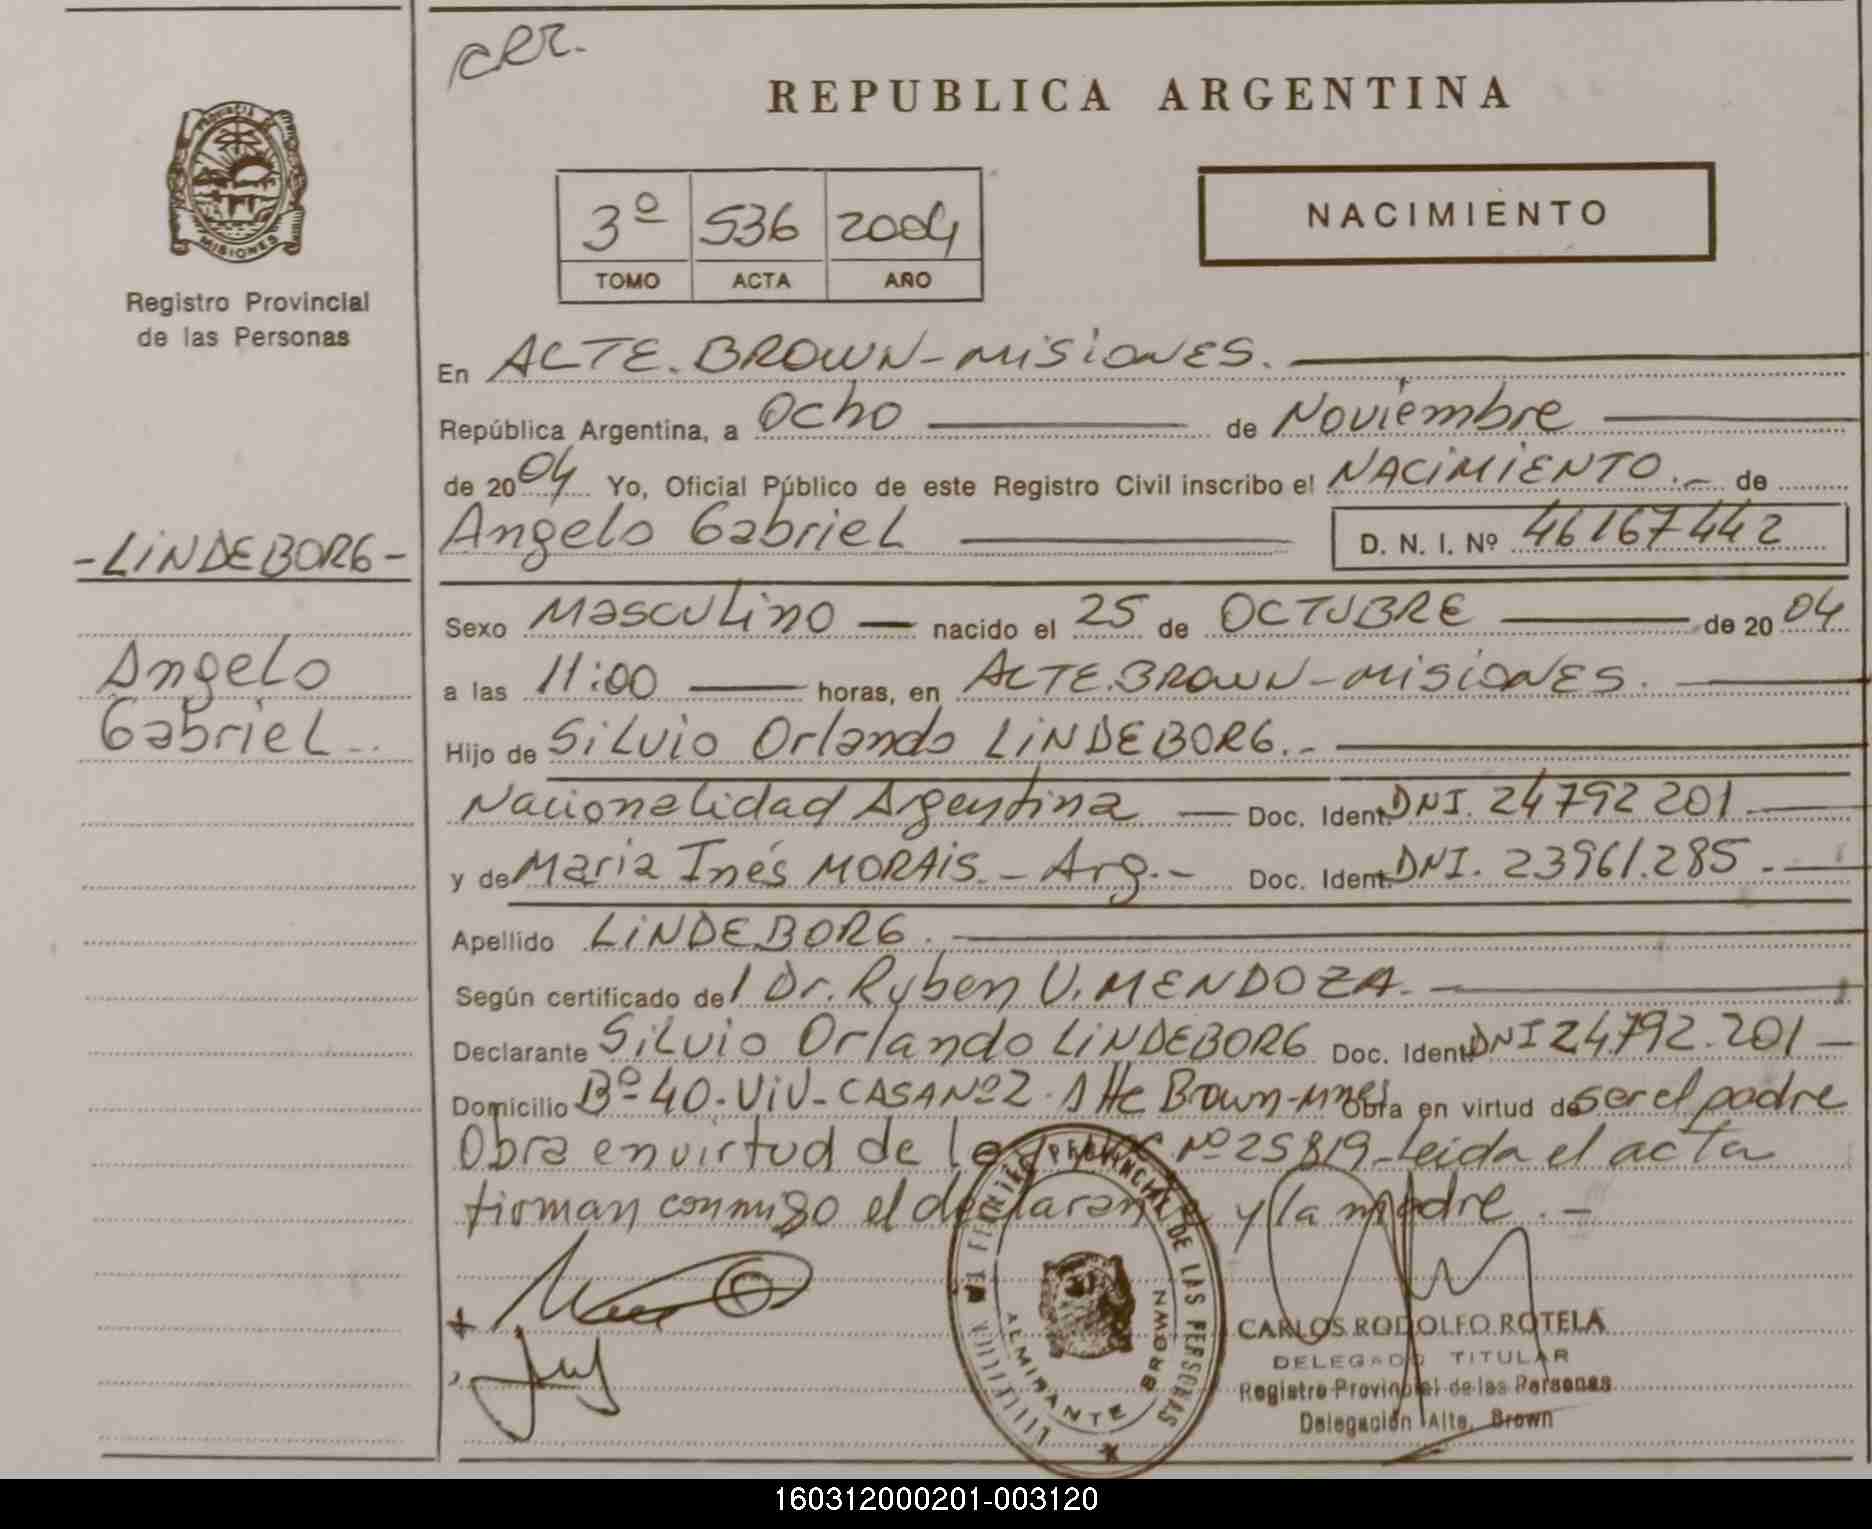 cer.
REPUBLICA ARGENTINA
PROVINCIA DE
MISIONES
Registro Provincial
de las Personas
3º 536 2004
TOMO ACTA AÑO
NACIMIENTO
En ACTE. BROWN-MISIONES.
República Argentina, a Ocho de Noviembre
de 2004 Yo, Oficial Público de este Registro Civil inscribo el NACIMIENTO.- de
-LINDEBORG-
Angelo Gabriel D. N. I. Nº 46167442
Sexo Masculino nacido el 25 de OCTUBRE de 2004
Angelo
Gabriel
a las 11:00 horas, en ALTE.BROWN-MISIONES.
Hijo de Silvio Orlando LINDEBORG.-
Nacionalidad Argentina Doc. Ident. DNI. 24792 201
y de Maria Inés MORAIS.- Arg.- Doc. Ident. DNI. 23961.285.
Apellido LINDEBORG.
Según certificado del Dr. Ruben V. MENDOZA.
Declarante Silvio Orlando LINDEBORG Doc. Ident. DNI 24.792.201
Domicilio Bº-40-VIV-CASA Nº2. Alte Brown-Mnes Obra en virtud de ser el padre
Obra en virtud de la Nº 25819-Leida el acta
firman conmigo el declarante y la madre.-
PROVINCIAL DE LAS PERSONAS
ALMIRANTE BROWN
CARLOS RODOLFO ROTELA
DELEGADO TITULAR
Registro Provincial de las Personas
Delegación Alte. Brown
160312000201-003120